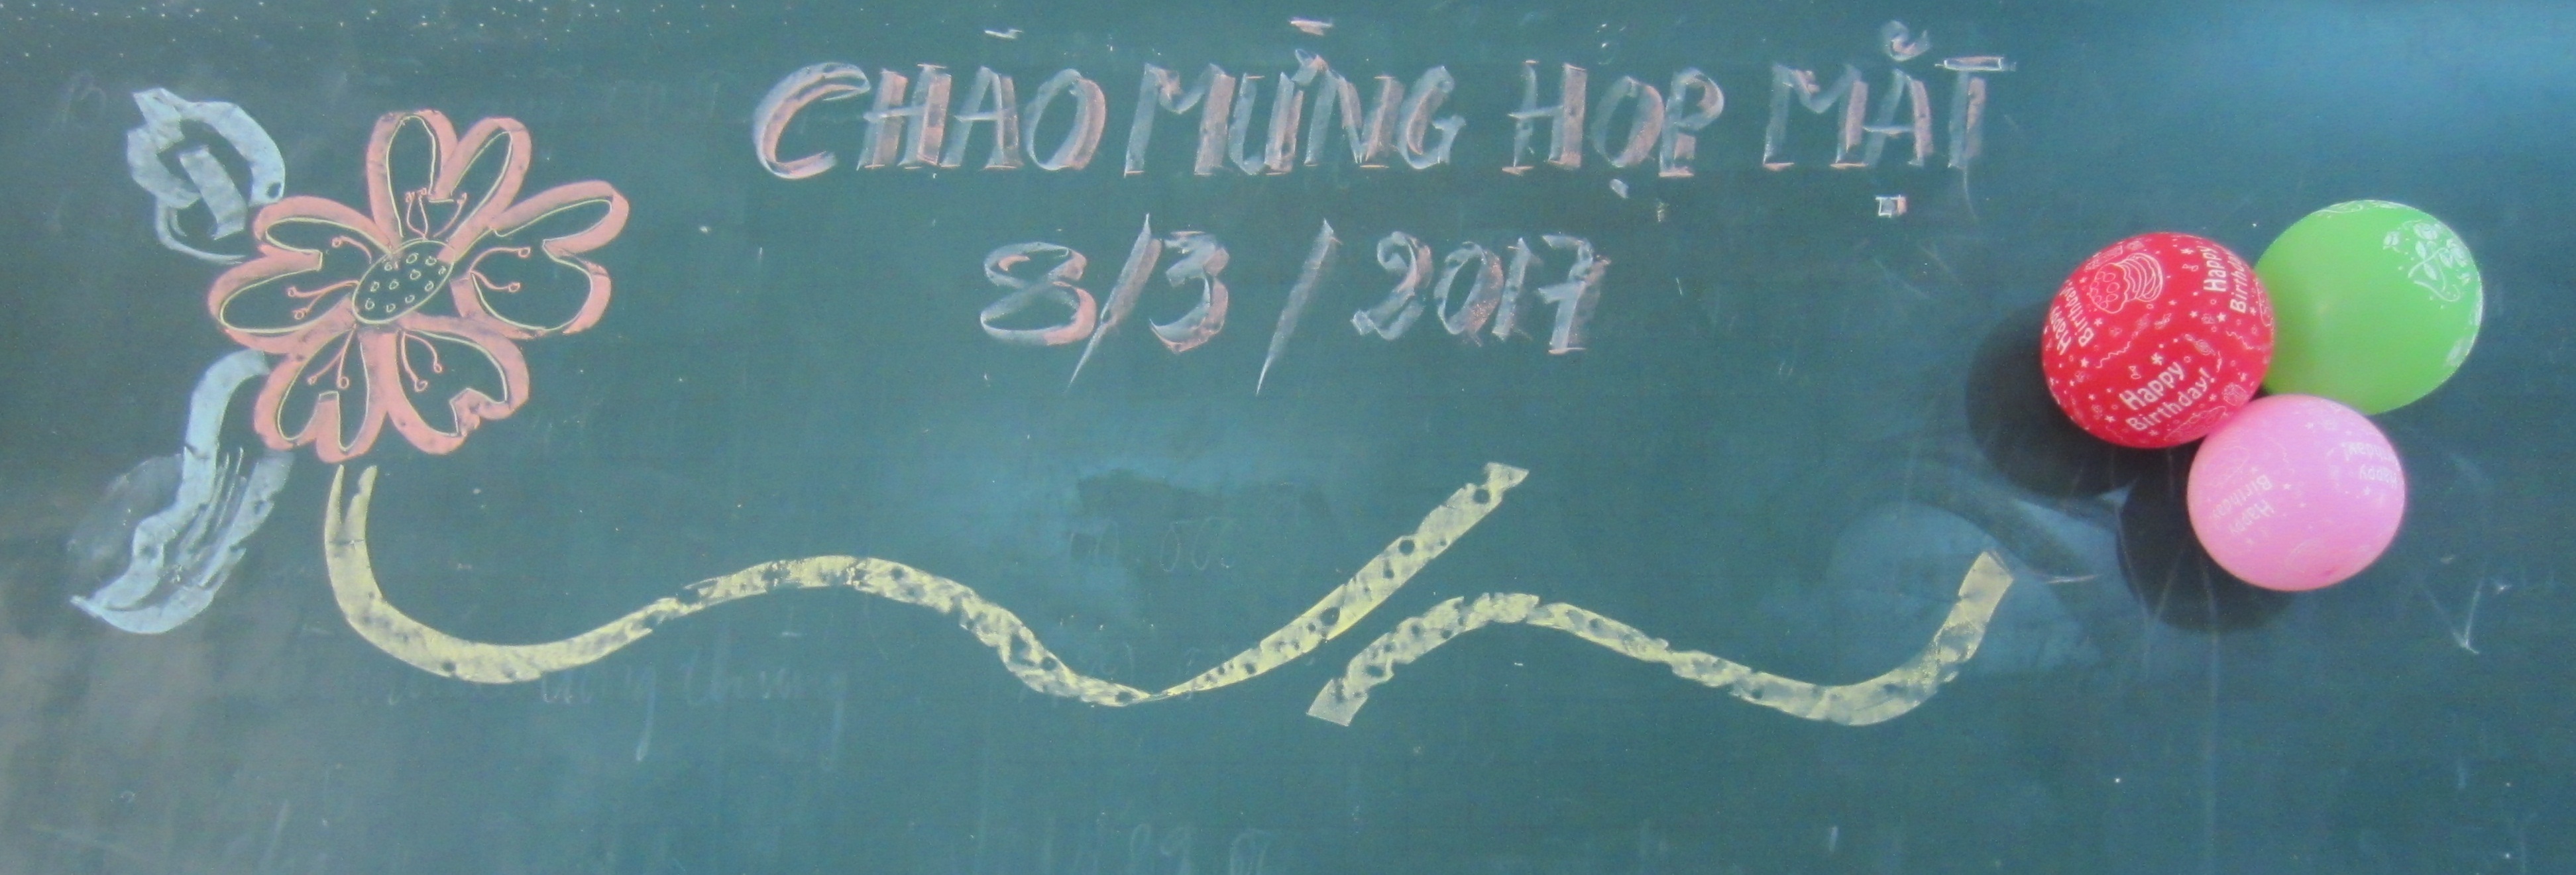 CHÀO MỪNG HỌP MẶT
8/3/2017
Happy Birthday!
Happy Birthday
Happy Birthday!
Happy Birthday!
Happy Birthday